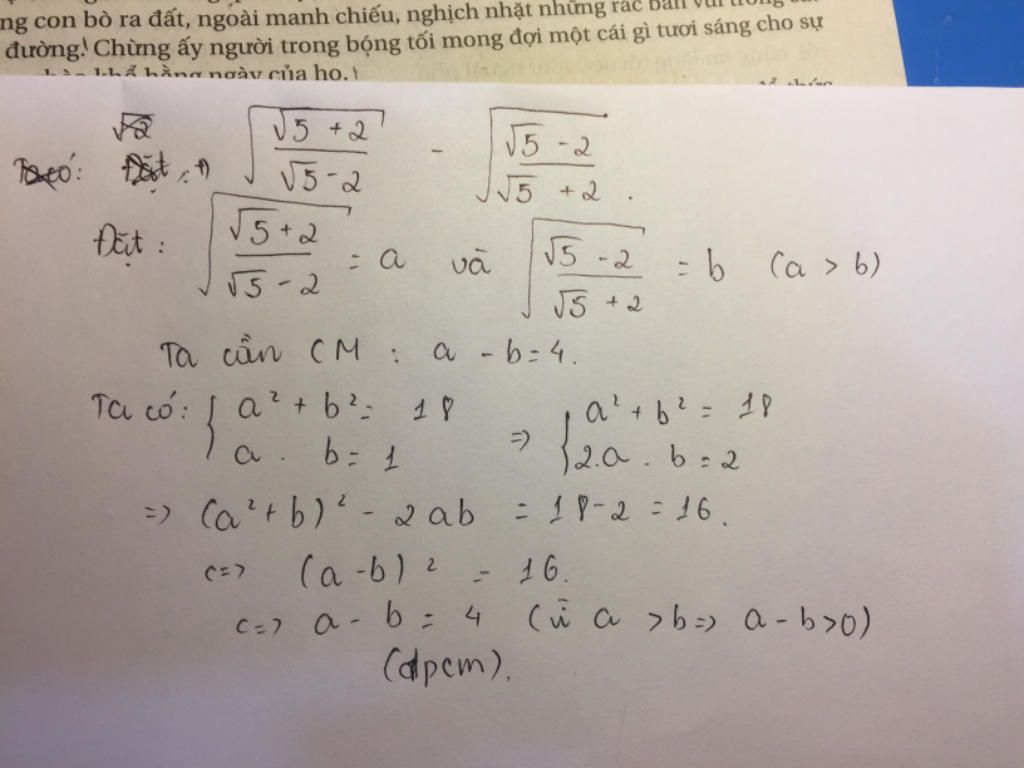 ng con bò ra đất, ngoài manh chiếu, nghịch nhặt những rác bẩn vùi trong cát
đường. Chừng ấy người trong bóng tối mong đợi một cái gì tươi sáng cho sự
khổ hằng ngày của họ.
√2
Ta có: Đặt √((√5 + 2)/(√5 - 2)) - √((√5 - 2)/(√5 + 2)).
Đặt : √((√5 + 2)/(√5 - 2)) = a và √((√5 - 2)/(√5 + 2)) = b (a > b)
Ta cần CM : a - b = 4.
Ta có: { a² + b² = 18 ; a . b = 1 => { a² + b² = 18 ; 2.a . b = 2
=> (a² + b)² - 2ab = 18 - 2 = 16.
<=> (a - b)² = 16.
<=> a - b = 4 (vì a > b => a - b > 0)
(đpcm).